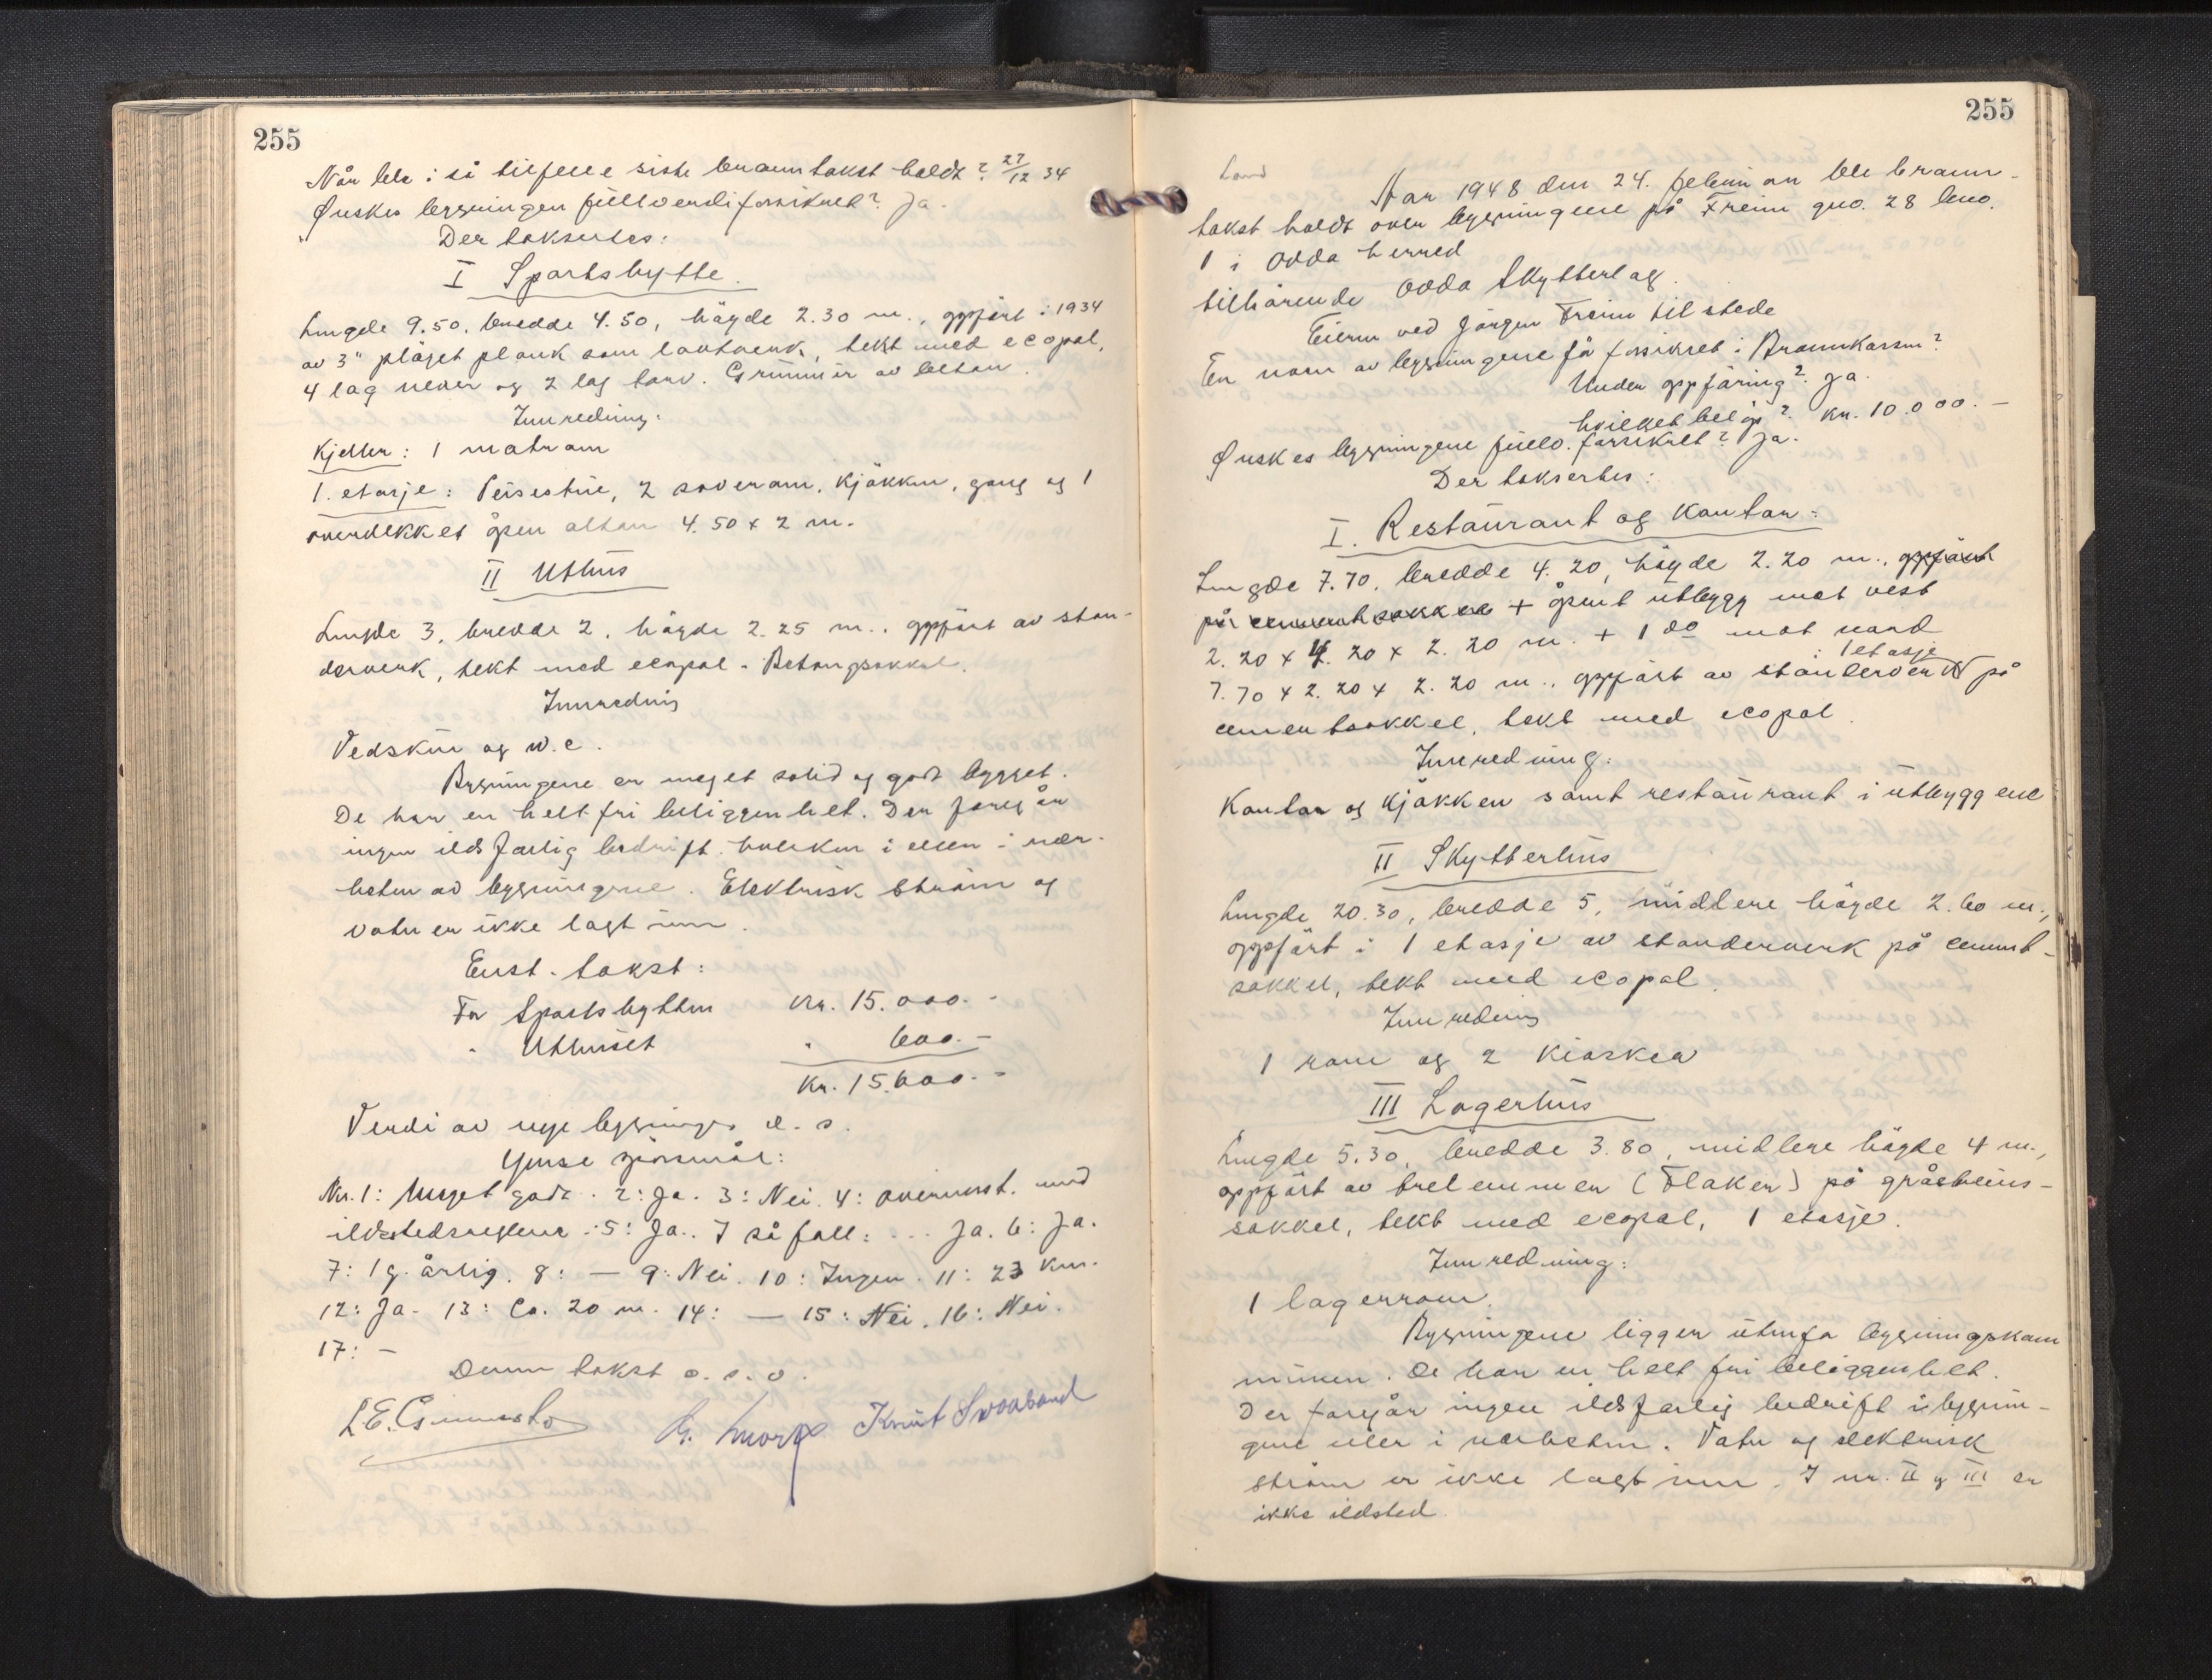 255
Når ble i så tilfelle siste branntakst holdt? 27/12 34
Ønskes bygningen fullverdiforsikret? Ja.
Der taksertes:
I Sportshytte.
Lengde 9.50, bredde 4.50, høyde 2.30 m., oppført i 1934
av 3" pløyet plank som laftverk, tekt med ecopal,
4 lag never og 2 lag torv. Grunnmur av beton.
Innredning:
Kjeller: 1 matrom
1. etasje: Peisestue, 2 soverom, kjøkken, gang og 1
overdekket åpen altan 4.50 x 2 m.
II Uthus
Lengde 3, bredde 2, høyde 2.25 m., oppført av sten-
derverk, tekt med ecopal. Betongsokkel.
Innredning
Vedskur og w.c.
Bygningene er meget solid og godt bygget.
De har en helt fri beliggenhet. Der foregår
ingen ildsfarlig bedrift hverken i eller i nær-
heten av bygningene. Elektrisk strøm og
vatn er ikke lagt inn.
Enst. takst:
For Sportshytten Kr. 15.000.-
" Uthuset " 600.-
Kr. 15.600.-
Verdi av nye bygninger d. s.
Ymse spørsmål:
Nr. 1: Meget godt. 2: Ja. 3: Nei. 4: overensst. med
ildstedsreglene. 5: Ja. I så fall: ... Ja. 6: Ja.
7: 1 g. årlig. 8: — 9: Nei. 10: Ingen. 11: 23 km.
12: Ja. 13: Ca. 20 m. 14: — 15: Nei. 16: Nei.
17: -
Denne takst o. s. v.
Knut Svaaband
255
Land
År 1948 den 24. februar ble brann-
takst holdt over bygningene på Freim gno. 28 bno.
1 i Odda herred
tilhørende Odda Skytterlag.
Eieren ved Jørgen Freim til stede
Er noen av bygningene før forsikret i Brannkassen?
Under oppføring? Ja.
hvilket beløp? Kr. 10.000.-
Ønskes bygningene fullv. forsikret? Ja.
Der taksertes:
I. Restaurant og Kontor:
Lengde 7.70, bredde 4.20, høyde 2.20 m., oppført
på cementsokkel + åpent utbygg mot vest
2.20 x 4.20 x 2.20 m. + 1 do mot nord
i 1 etasje
7.70 x 2.20 x 2.20 m., oppført av stenderverk på
cementsokkel, tekt med ecopal.
Innredning:
Kontor og kjøkken samt restaurant i utbyggene
II Skytterhus
Lengde 20.30, bredde 5, midlere høyde 2.60 m.,
oppført i 1 etasje av stenderverk på cement-
sokkel, tekt med ecopal.
Innredning
1 rom og 2 kiosker
III Lagerhus
Lengde 5.30, bredde 3.80, midlere høyde 4 m.,
oppført av trelemmer (Flaker) på gråsteins-
sokkel, tekt med ecopal, 1 etasje.
Innredning:
1 lagerrom.
Bygningene ligger utenfor bygningskom
munen. De har en helt fri beliggenhet.
Der foregår ingen ildsfarlig bedrift i bygnin-
gene eller i nærheten. Vatn og elektrisk
strøm er ikke lagt inn. I nr. II og III er
ikke ildsted.